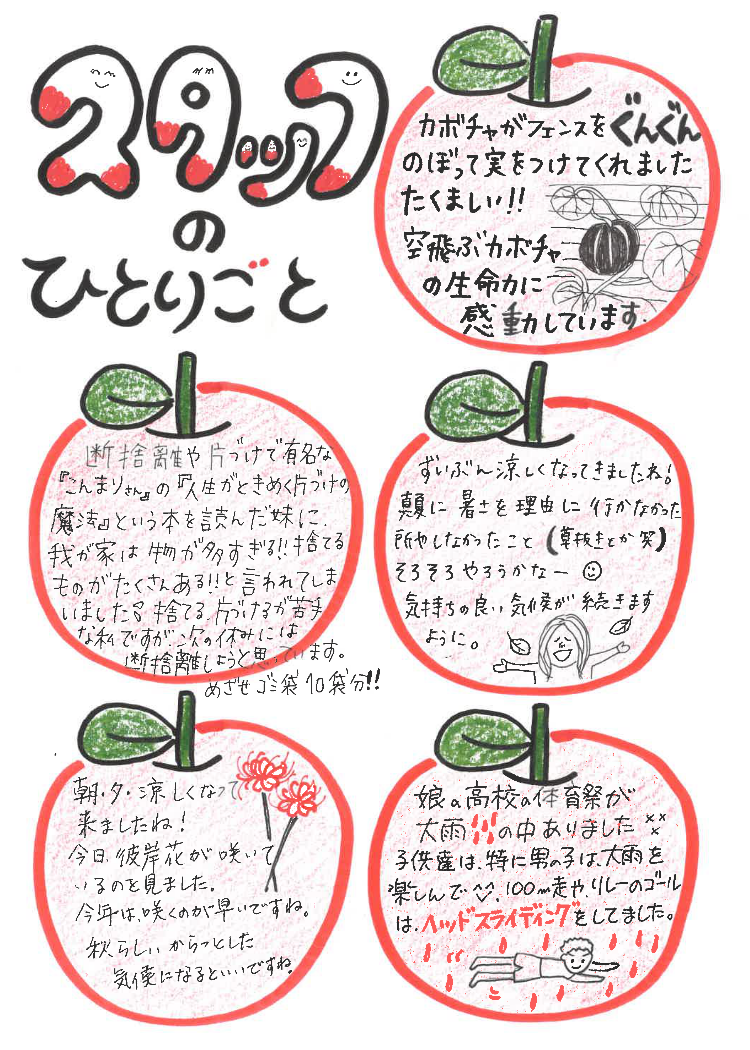 スタッフ
の
ひとりごと
カボチャがフェンスをぐんぐん
のぼって実をつけてくれました
たくましい!!
空飛ぶカボチャ
の生命力に
感動しています.
断捨離や片づけで有名な
『こんまりさん』の『人生がときめく片づけの
魔法』という本を読んだ妹に、
我が家は物が多すぎる!!捨てる
ものがたくさんある!!と言われてしま
いました 捨てる、片づけるが苦手
な私ですが、次の休みには
断捨離しようと思っています。
めざせゴミ袋10袋分!!
ずいぶん涼しくなってきましたね!
夏に暑さを理由に行かなかった
所やしなかったこと(草抜きとか笑)
そろそろやろうかなー
気持ちの良い気候が続きます
ように。
朝・夕・涼しくなって
来ましたね!
今日、彼岸花が咲いて
いるのを見ました。
今年は、咲くのが早いですね。
秋らしいからっとした
気候になるといいですね。
娘の高校の体育祭が
大雨の中ありました
子供達は、特に男の子は、大雨を
楽しんで、100m走やリレーのゴール
は、ヘッドスライディングをしてました。